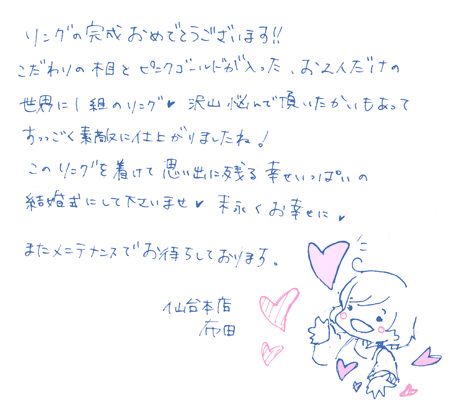 リングの完成おめでとうございます!!
こだわりの木目とピンクゴールドが入った、お2人だけの
世界に1組のリング♥ 沢山悩んで頂いたかいもあって
すっごく素敵に仕上がりましたね!
このリングを着けて思い出に残る幸せいっぱいの
結婚式にして下さいませ♥ 末永くお幸せに♥
またメンテナンスでお待ちしております。
仙台本店
布田